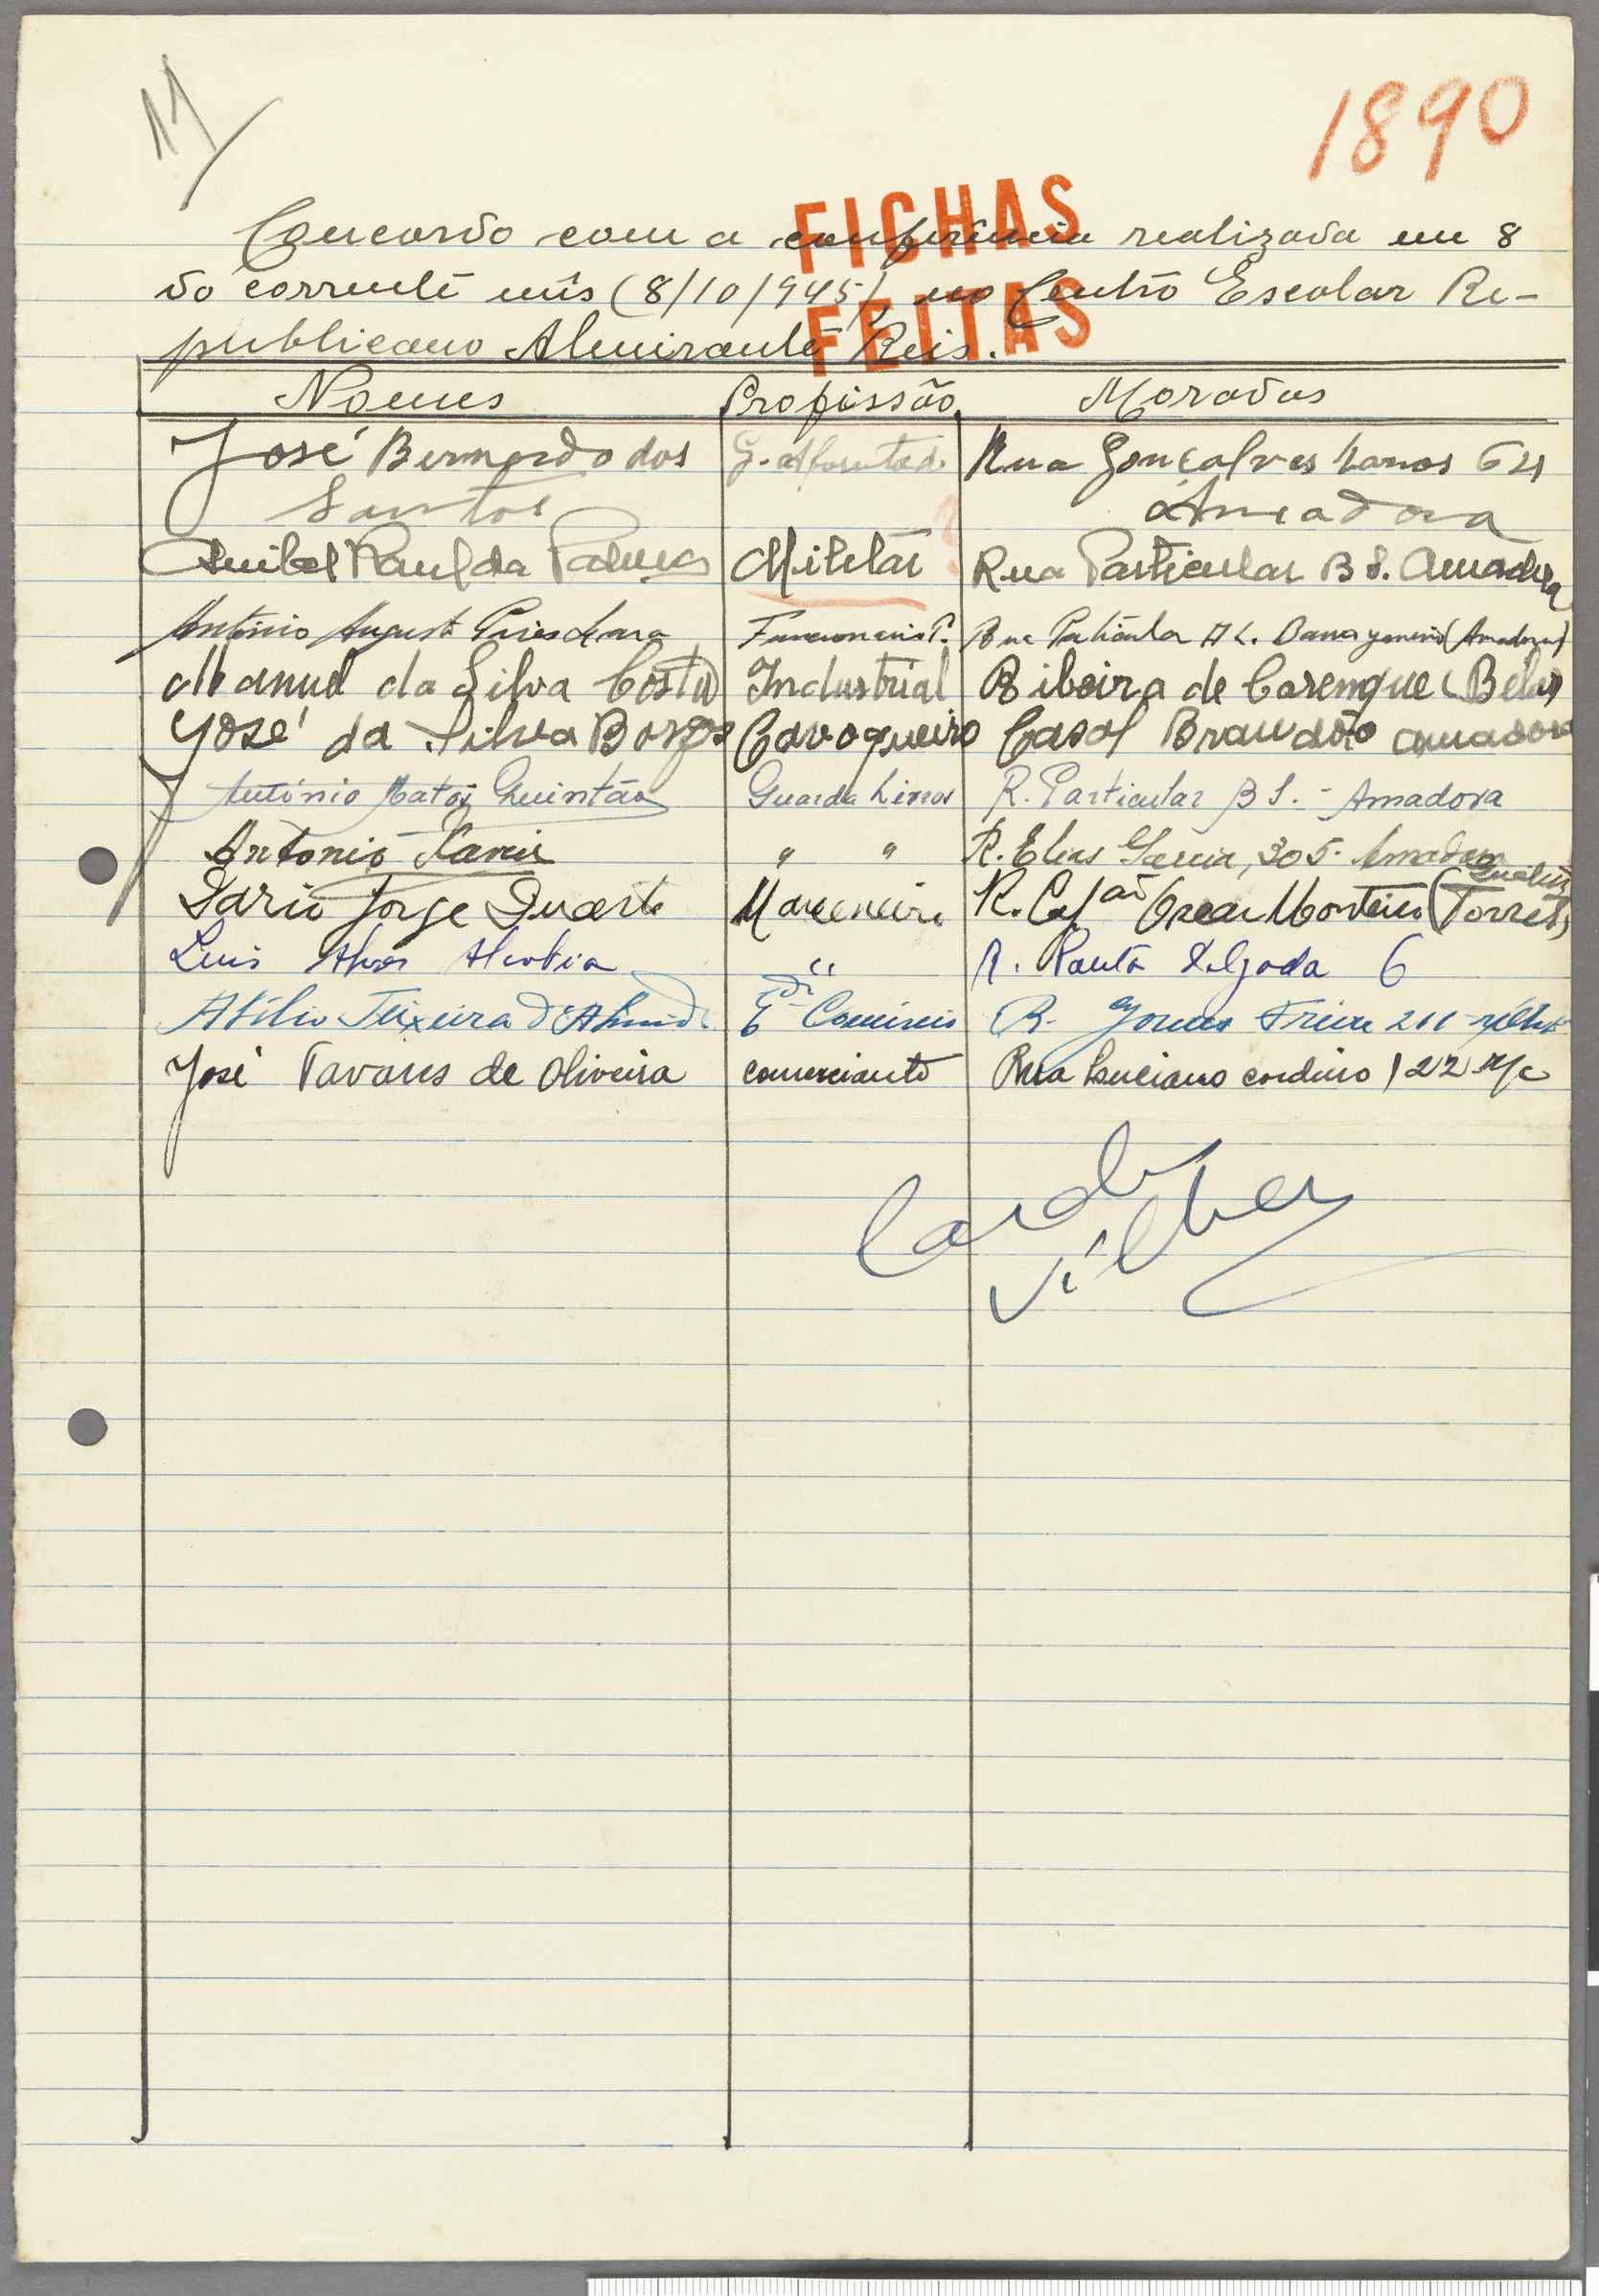 11
1890
FICHAS
FEITAS
Concordo com a conferência realizada em 8
do corrente mês (8/10/945), no Centro Escolar Re-
publicano Almirante Reis.
Nomes Profissão Moradas
José Bernardo dos Santos Rua Gonçalves Ramos 64 Amadora
Anibal Raul da Militar Rua Particular B S. Amadora
António Augusto Pires Funcionario P. Rua A L. (Amadora)
Manuel da Silva Costa Industrial Ribeira de Carenque (Belas)
José da Silva Borges Cavoqueiro Casal Brandão Amadora
António Matos Quintão Guarda Livros R. Particular B S. - Amadora
Antonio Xavier " " R. Elias Garcia, 305. Amadora
Dario Jorge Duarte Marceneiro R. Cap.ão Oscar Monteiro Torres (Queluz)
Luis Alves " R. Ponta Delgada 6
Atilio Teixeira d'Almeida E. di Comércio R. Gomes Freire 211
José Tavares de Oliveira comerciante Rua Luciano cordeiro 122 r/c